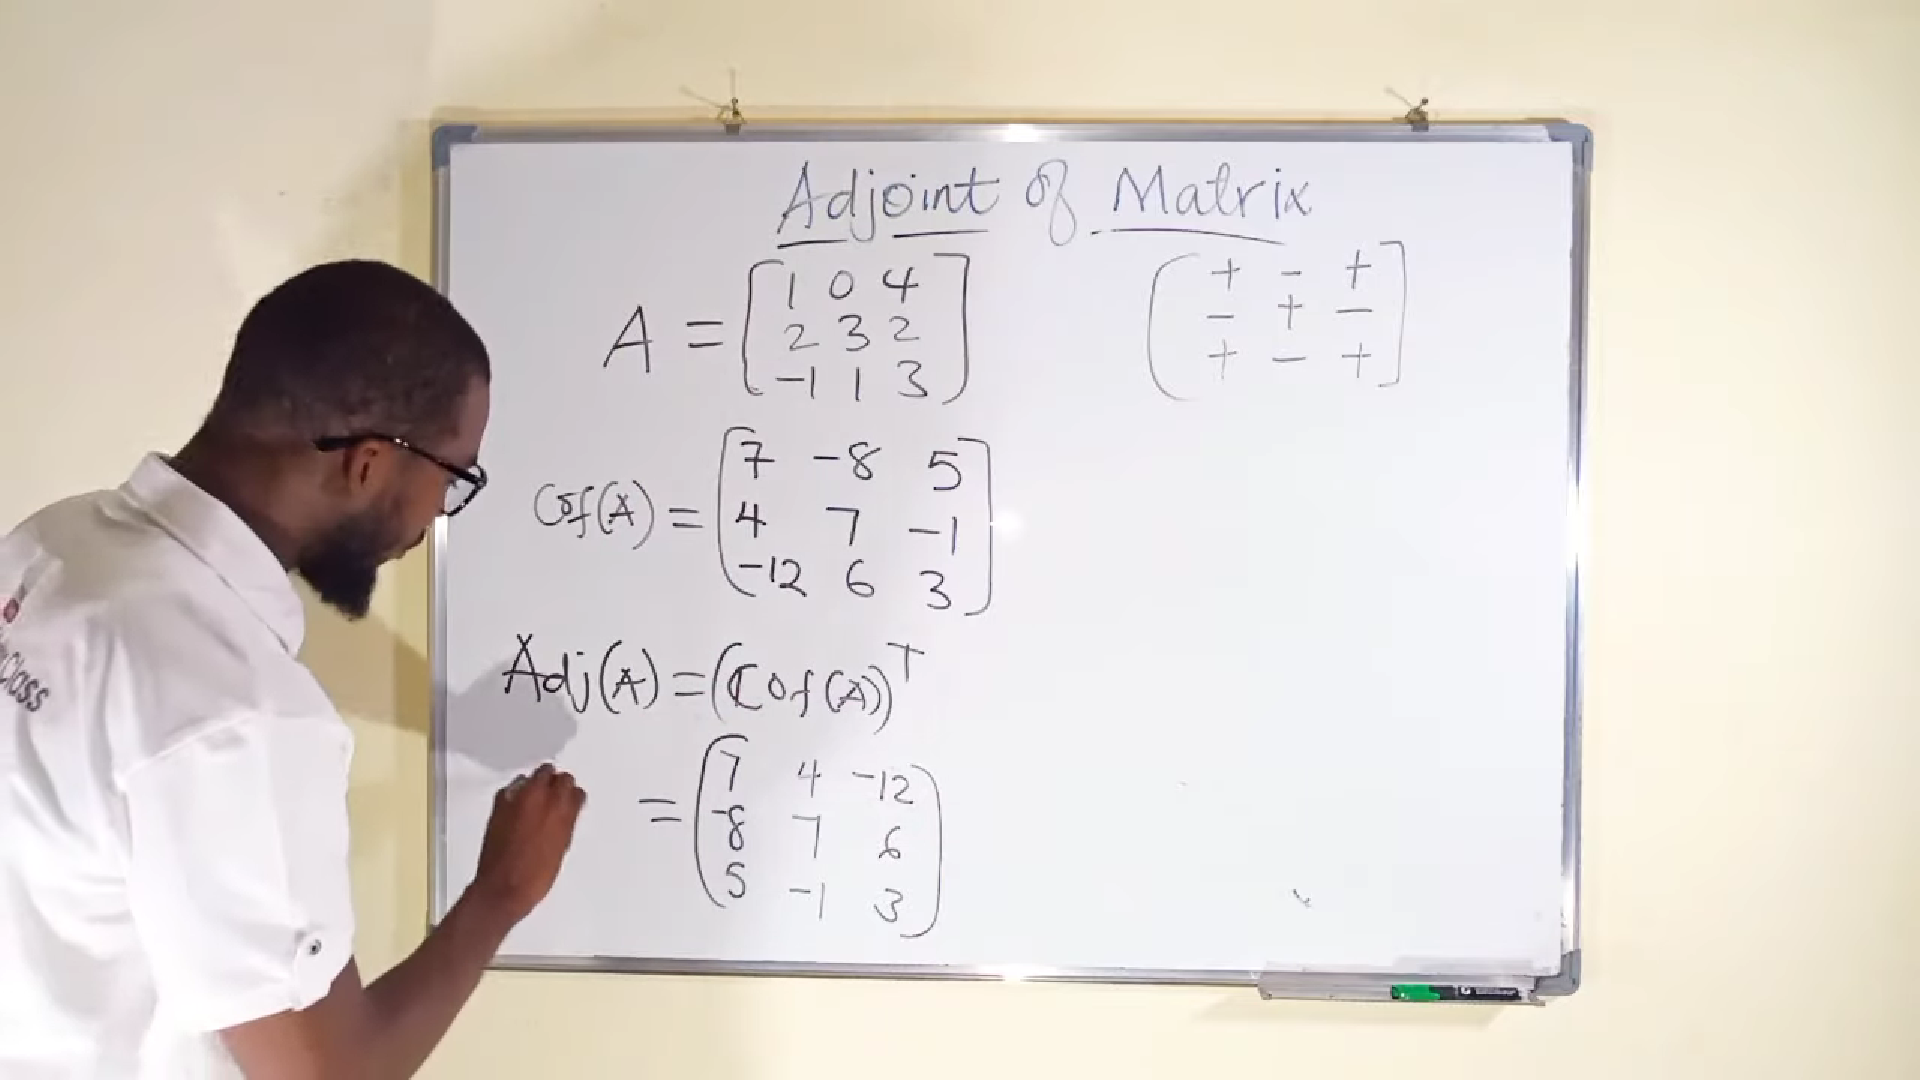 Adjoint of Matrix
A = [1 0 4
2 3 2
-1 1 3]
[+ - +
- + -
+ - +]
Cof(A) = [7 -8 5
4 7 -1
-12 6 3]
Adj(A) = (Cof(A))^T
= (7 4 -12
-8 7 6
5 -1 3)
Class